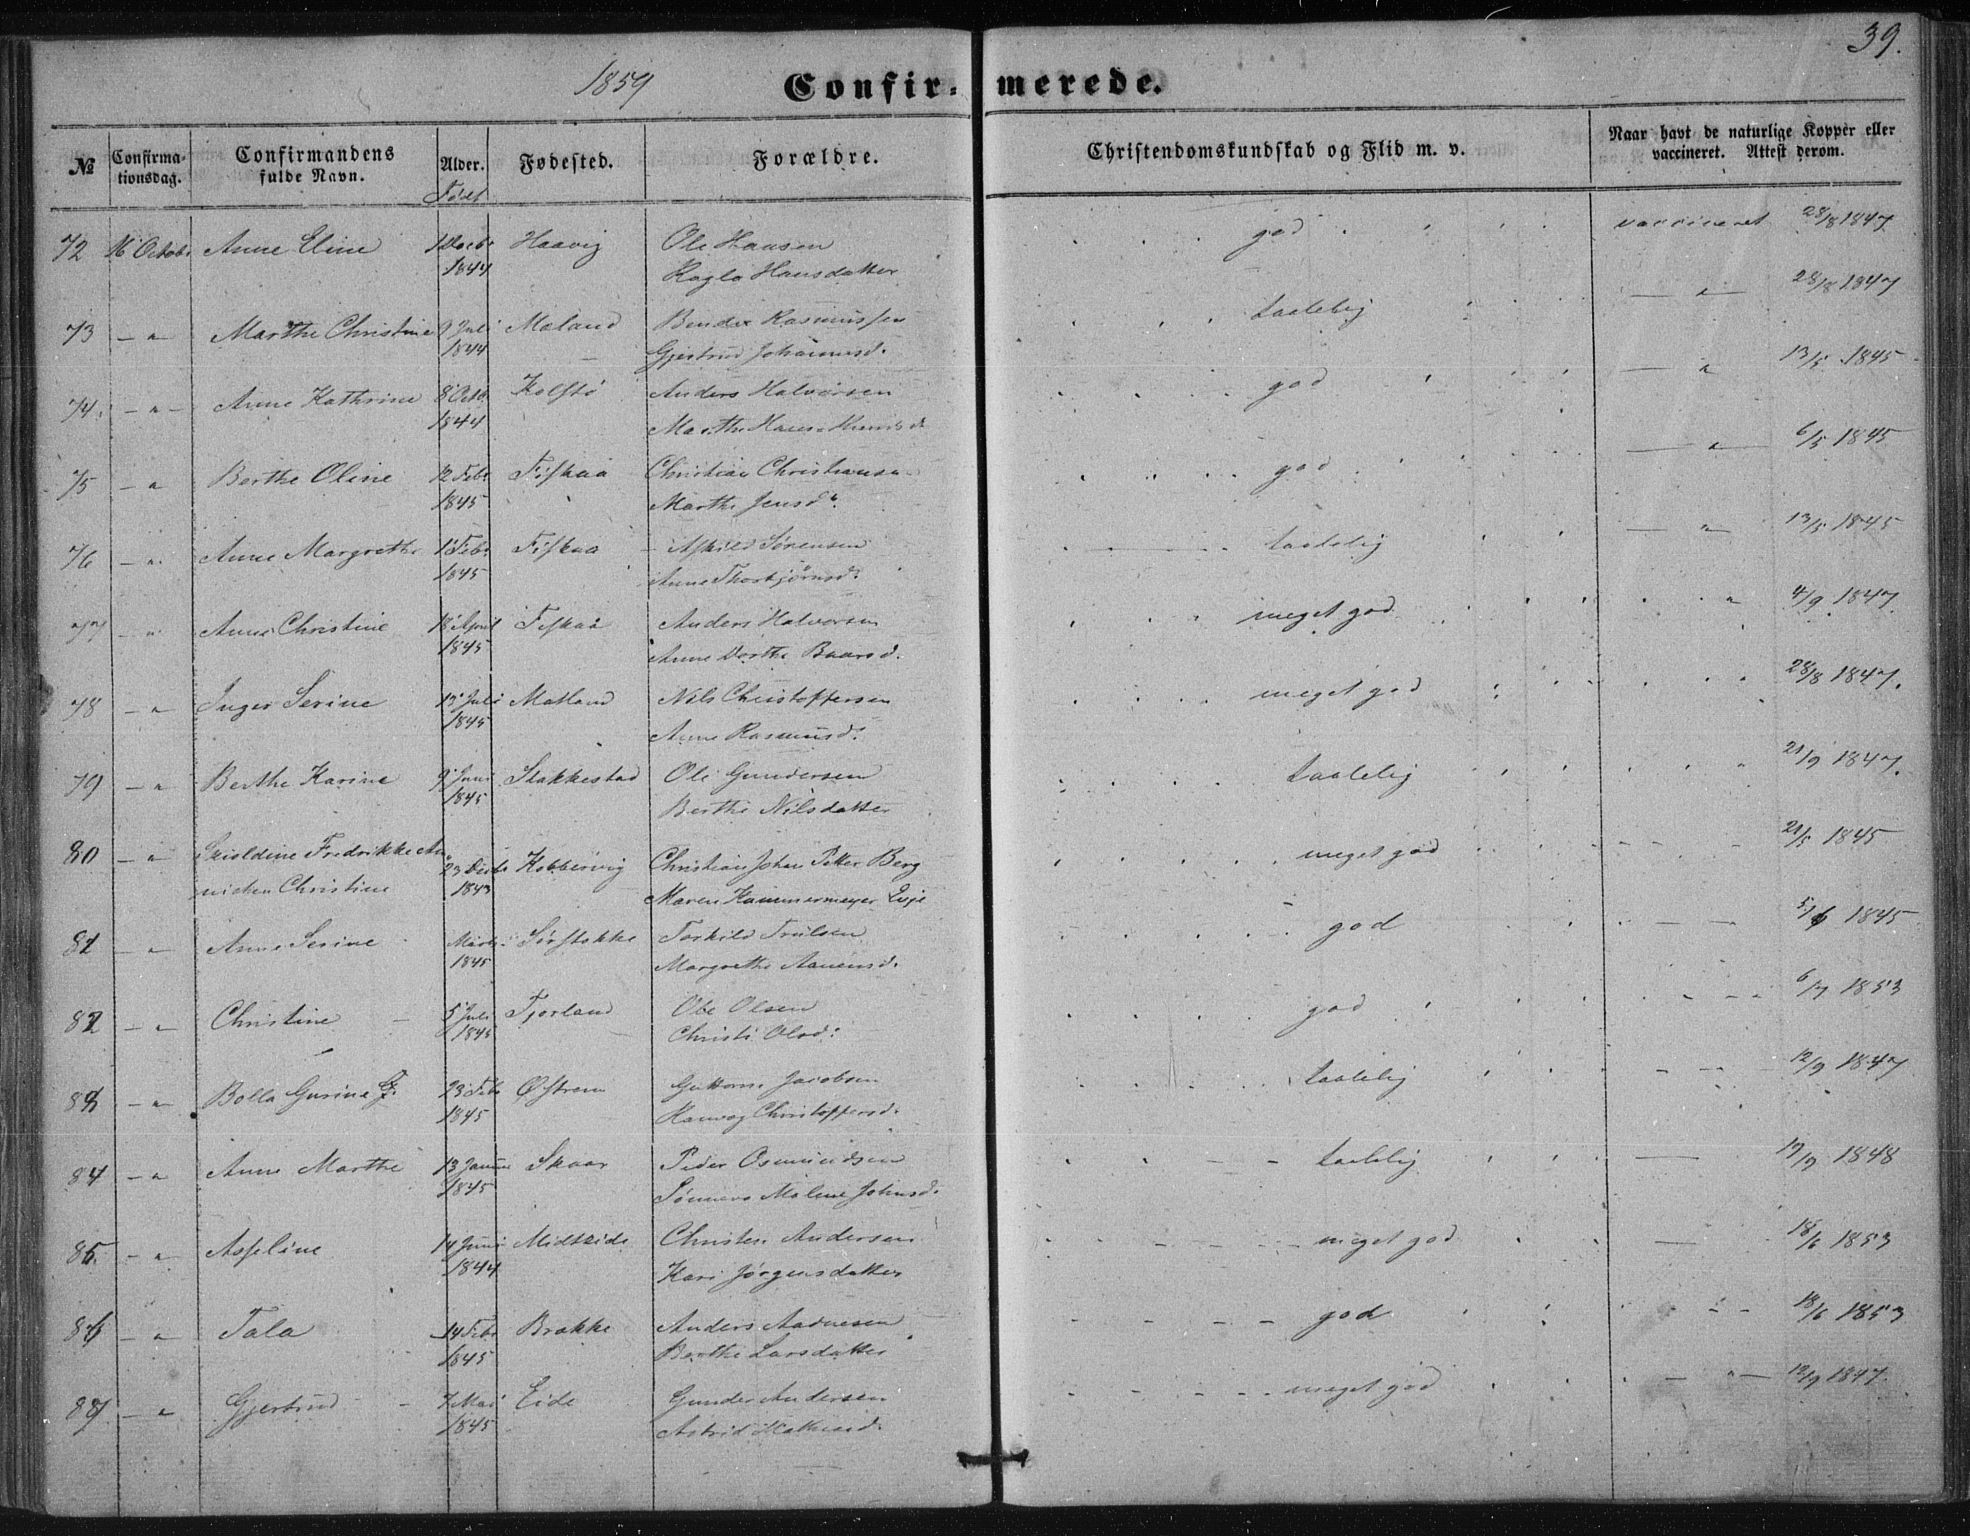 39.
1859 Confirmerede.
№ Confirmationsdag. Confirmandens fulde Navn. Alder. Fødested. Forældre. Christendomskundskab og Flid m. v. Naar havt de naturlige Kopper eller vaccineret. Attest derom.
Født
72 16 Octob. Anne Eline Haavig Ole Hansen god vaccineret 28/8 1847
1844 Hansdatter
73 — " Marthe Christine 9 Juli Maland Rasmussen taalelig — " — 28/8 1847
1844 Gjertrud Johannesd.
74. — " — Anne Kathrine 8 Octb. Kolstø Anders Halvorsen god — " 13/5 1845
1844 Marthe
75 — " Berthe Oline 12 Feb. Fiskaa Christian Christiansen god — " — 6/5 1845
1845 Marthe Jensd.
76 — " Anne Margrethe Feb. Fiskaa Askild Sørensen taalelig — " — 13/5 1845
1845 Anne Thorbjørnsd.
77 — " Anne Christine 18 April Fiskaa Anders Halvorsen meget god " 4/9 1847
1845 Anne Dorthe Baarsd.
78 — " Inger Serine 13 Juli Matland Nils Christoffersen meget god " 28/8 1847.
1845 Anne Rasmusd.
79 — " Berthe Karine 9 Juni Stakkestad Ole Gundersen taalelig " 21/9 1847.
1845 Berthe Nilsdatter
80 — " Skioldine Fredrikke An 23 Kobbervig Christian Johan Petter Berg meget god 21/5 1845
nichen Christine 1843 Maren Kammermeyer
81 — " Anne Serine Marts Sørstokke Torkild Trulsen god 1845
1845 Margrethe
82 — " Christine 5 Juli Tjorland Ole Olsen god 6/7 1853
1845 Christi Olsd.
83 — " Bolla Gurine G. 23 Feb. Østrem Guttorm Jacobsen taalelig 12/9 1847
1845 Christoffersd.
84 — " Anne Marthe 13 Januar Skaar Peder Osmundsen taalelig 1848
1845 Malene Johnsd.
85. — " Asseline 14 Juni Midteide Christen Andersen meget god 18/6 1853
1844 Kari Jørgensdatter
86 — " Tala 14 Feb. Brekke Anders Aadnesen god 18/6 1853
1845 Berthe Larsdatter
87 — " Gjertrud 7 Mai Eide Gunder Andersen meget god — " — 12/9 1847.
1845 Astrid